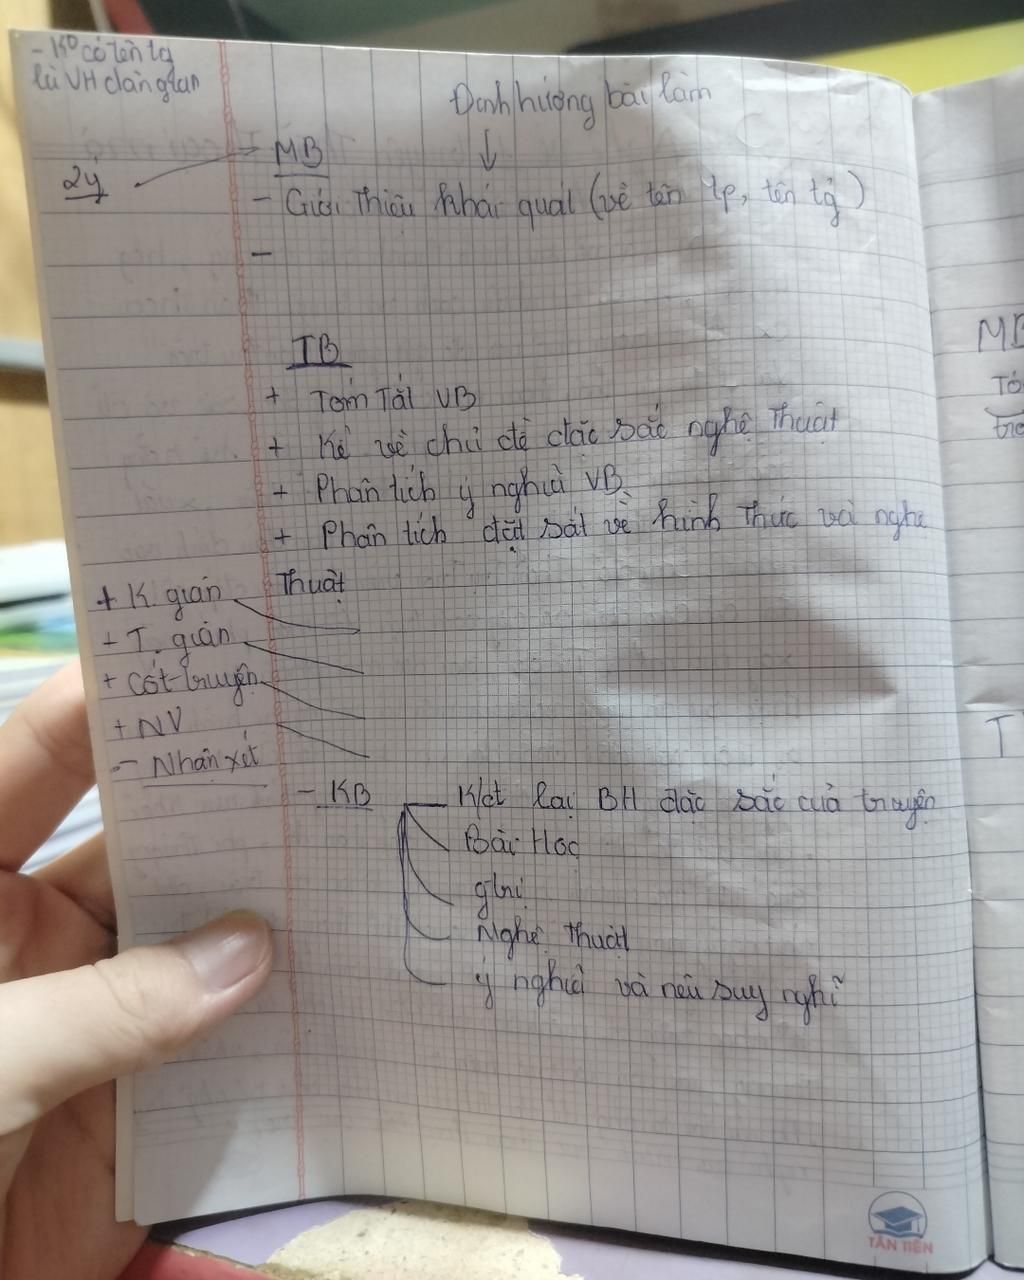 - K° có tên tg
là VH dân gian
Định hướng bài làm
MB
2ý
- Giới thiệu khái quát (về tên tp, tên tg)
-
TB
+ Tóm Tắt VB
+ Kể về chủ đề đặc sắc nghệ thuật
+ Phân tích ý nghĩa VB
+ Phân tích đặt sắt về hình thức và nghệ
thuật
+ K. gian
+ T. gian
+ Cốt truyện
+ NV
- Nhận xét
- KB
K/đt lại BH đặc sắc của truyện
Bài Học
gtrị
Nghệ thuật
ý nghĩa và nêu suy nghĩ
MB
T
TÂN TIẾN